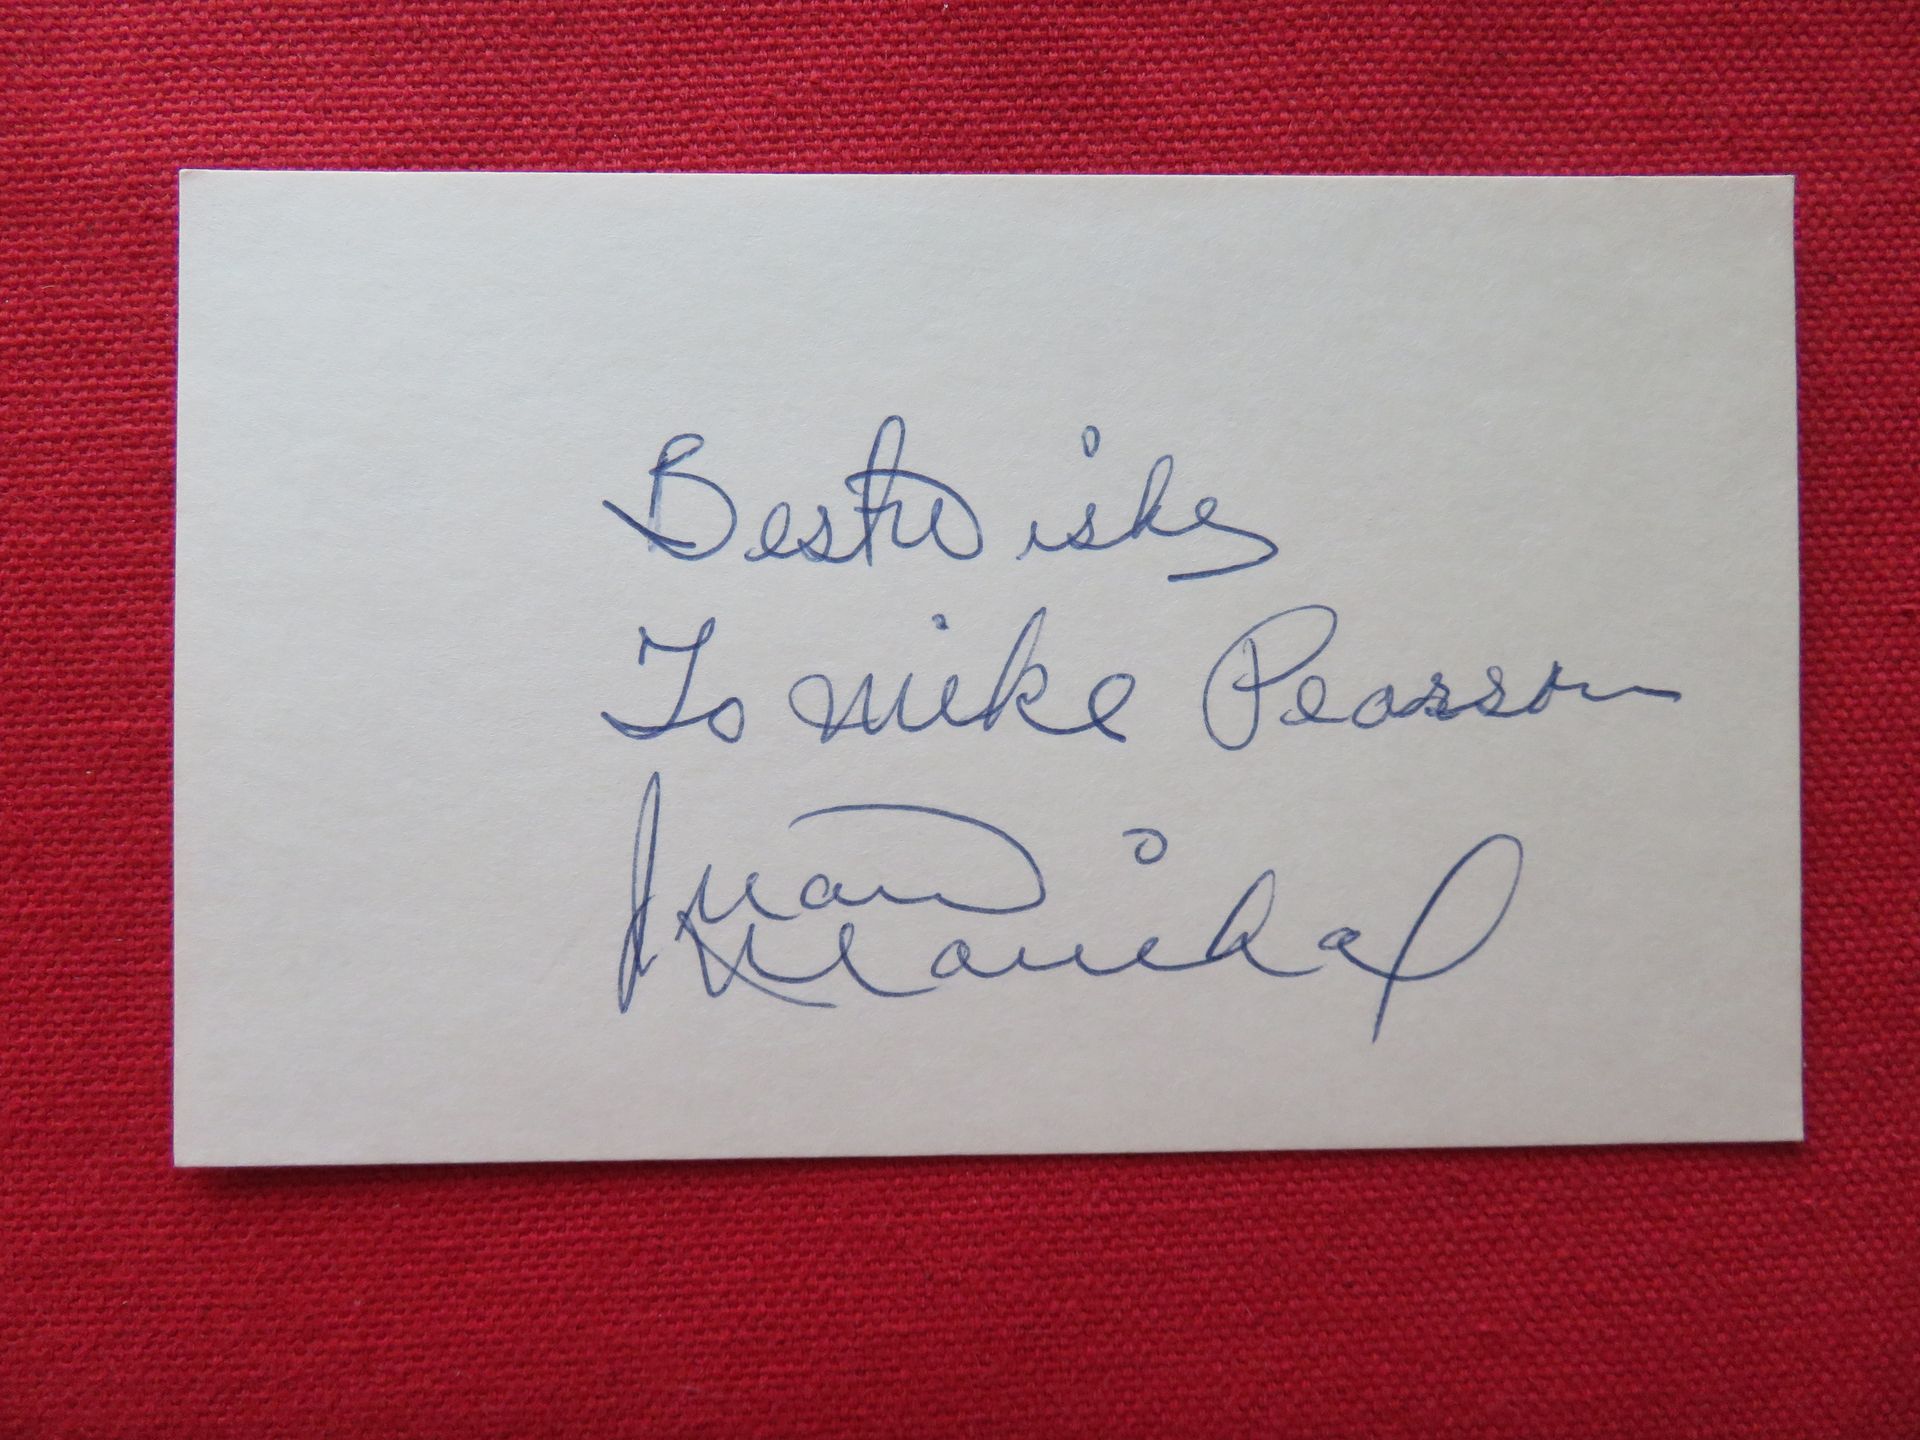 Best Wishes
To Mike Pearson
Juan
Marichal